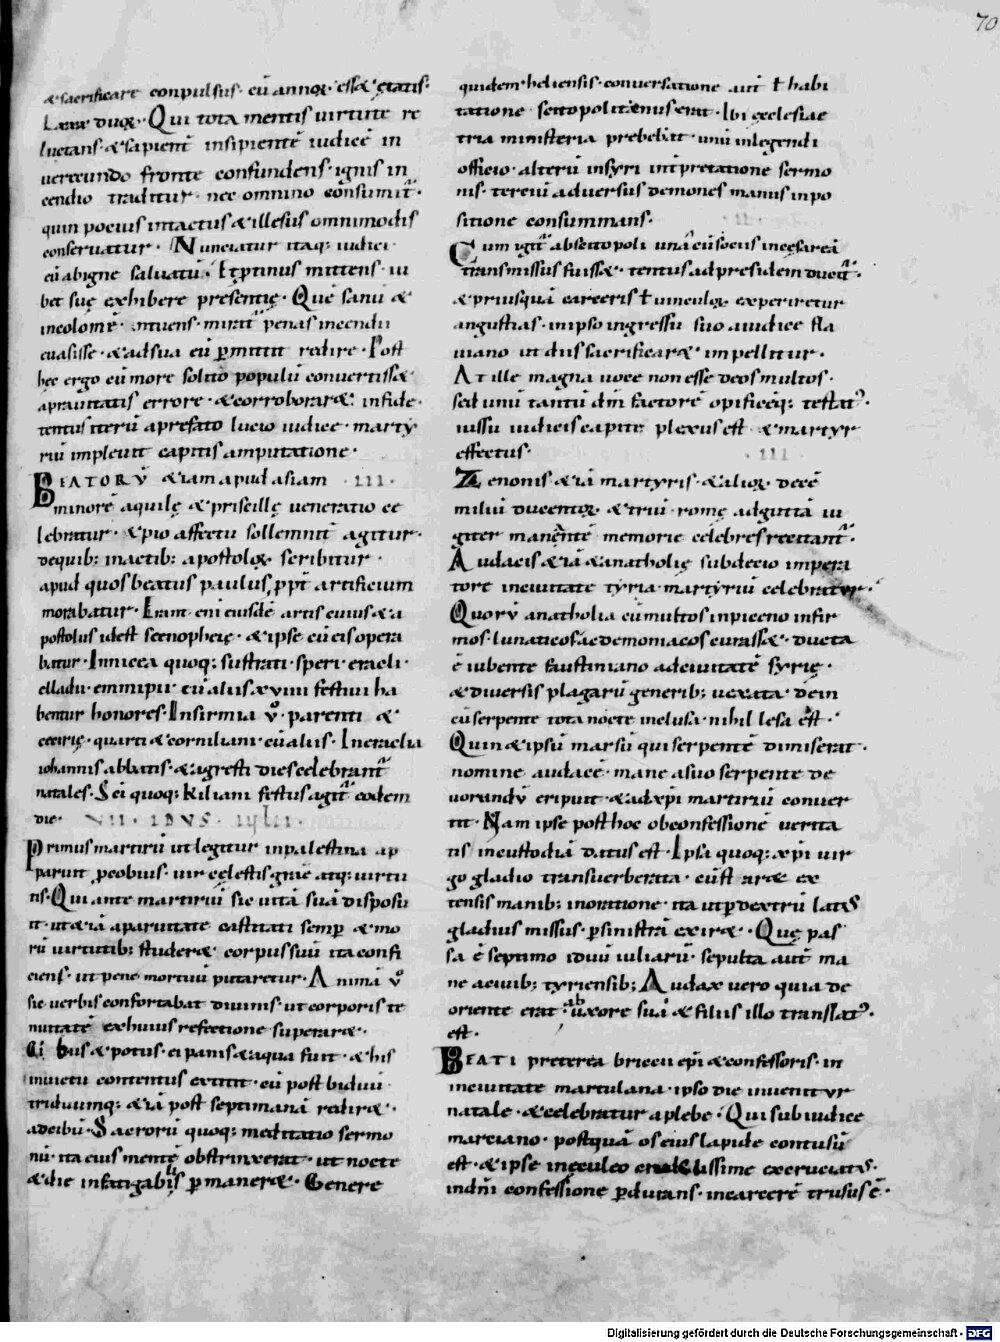 70
& sacrificare conpulsus· cū annoꝝ· ess& ętatis·
Lxxx duoꝝ· Qui tota mentis uirtute re
luctans· & sapient̄ insipientē iudicē in
uerecundo fronte confundens· ignis in
cendio traditur· nec omnino consumit᷑·
quin pocius intactus & illesus omnimodis
conseruatur· Nunciatur itaq; iudici·
cū abigne saluatū· Et ꝓtinus mittens· iu
bet suę exhibere presentię· Quē sanū &
incolomē· intuens· mirat᷑ penas incendii
euasisse· & ad sua eū ꝑmittit redire· Post
hęc ergo eū more solito populū conuertiss&
aprauitatis errore· & corroborar& infide·
tentus iterū aprefato lucio iudice· marty
riū impleuit capitis amputatione·
BEATORV̄ & iam apud asiam ·III·
minorē aquilę & priscillę ueneratio ce
lebratur· & pio affectu sollemnit᷑ agitur·
de quib; inactib; apostoloꝝ scribitur·
apud quos beatus paulus, ꝓpt̄ artificium
morabatur· Erant eni eiusdē artis cuius & a
postolus idest scenopheię· & ipse cū eis opera
batur· Innicea quoq; sustrati· speri· eracli·
elladii· emmipii· cū aliis xviiii festiui ha
bentur honores· Insirmia v̊· parenti &
ceeirię· quarti & corniliani· cū aliis· Ineraclia
iohannis abbatis· & agresti dies celebrant᷑
natales· Sc̄i quoq; kiliani festus agit᷑ eodem
die· VII· IDVS· iulii·
Primus martirū ut legitur inpalestina ap
paruit ꝓcobius· uir cęlestis grāe atq; uirtu
tis· Qui ante martiriū sic uitā suā disposu
it· ut &iā aparuitate castitati semꝑ & mo
rū uirtutib; studer& corpus suū ita confi
ciens· ut pene mortuū putaretur· Animā v̊
sic uerbis confortabat diuinis· ut corporis te
nuitatē ex huius refectione superar&·
Cibus & potus· ei panis & aqua fuit· & his
inuictu contentus extitit· cū post biduū·
triduumq; &iā post septimanā redir&·
ad cibū· Sacrorū quoq; meditatio sermo
nū· ita eius mentē obstrinxerat· ut nocte
& die infatigabilis ꝑmaner&· Genere
quidem· heliensis· conuersatione aut̄ ł habi
tatione· scitopolit&nus erat· Ibi ęcclesiae
tria ministeria prebebat· unū inlegendi
officio· alterū insyri int̄pretatione sermo
nis· terciū aduersus demones manus inpo
sitione consummans· II·
Cum igit᷑ abscitopoli una cū sociis incęsareā
transmissus fuiss&· tentus ad presidem duct᷑·
& priusquā carceris ł uinculoꝝ experiretur
angustias· in ipso ingressu suo a iudice fla
uiano ut diis sacrificar& impellitur·
At ille magna uoce non esse deos multos·
sed unū tantū dm̄ factorē opificēq; testat᷑·
iussu iudicis capite plexus est & martyr
effectus· III
Zenonis &iā martyris· & alioꝝ decē
miliū ducentoꝝ· & triū· romę adguttā iu
giter manentē memorie celebres recitant᷑·
Audacis &iā & anatholię subdecio impera
tore inciuitate tyria· martyriū celebratur·
Quorū anatholia cū multos inpiceno infir
mos· lunaticos ac demoniacos curass&· ducta
ē iubente faustiniano adciuitatē syrię·
& diuersis plagarū generib; uexata· dein
cū serpente tota nocte inclusa· nihil lesa est·
Quin & ipsū marsū qui serpentē dimiserat·
nomine audacē· mane a suo serpente de
uorandū eripuit & adxp̄i martiriū conuer
tit· Nam ipse post hoc obconfessionē uerita
tis incustodiā datus est· Ipsa quoq; xp̄i uir
go gladio transuerberata· cū star& ex
tensis manib; inoratione· ita ut ꝑ dextrū latus
gladius missus· ꝑ sinistrā exir&· Quę pas
sa ē septimo iduū iuliarū· sepulta aut̄ ma
ne aciuib; tyriensib; Audax uero quia de
oriente erat· ab uxore sua & filiis illo translat᷑·
est·
BEATI preterea briccii ep̄i & confessoris· in
inciuitate martulana· ipso die inuenitur
natale· & celebratur a plebe· Qui sub iudice
marciano· postquā os eius lapide contusū
est· & ipse ineculeo crudelissime excruciat᷑·
indn̄i confessione ꝑdurans· incarcerē trusus ē·
Digitalisierung gefördert durch die Deutsche Forschungsgemeinschaft - DFG